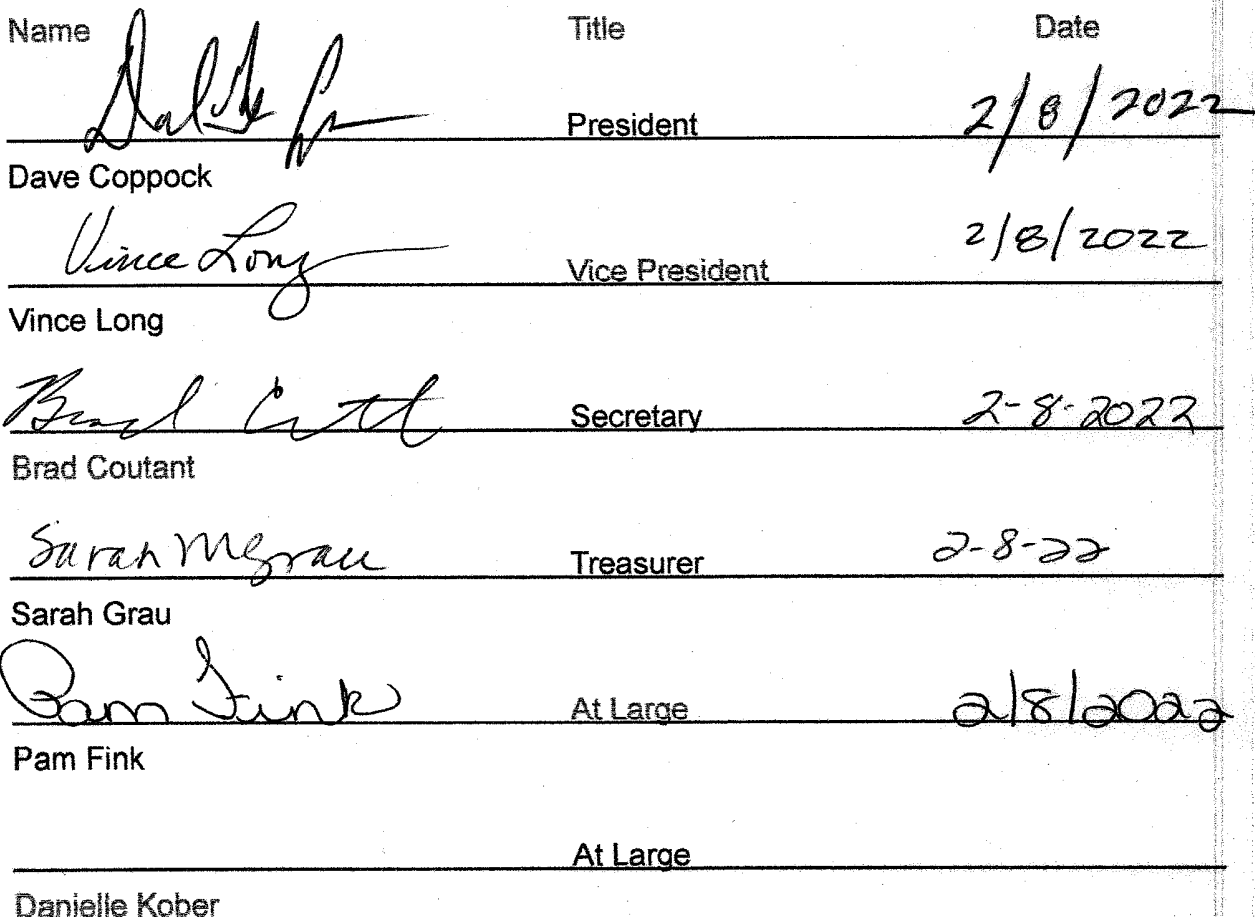 Name Title Date
President 2/8/2022
Dave Coppock
Vince Long Vice President 2/8/2022
Vince Long
Brad Secretary 2-8-2022
Brad Coutant
Sarah McGrau Treasurer 2-8-22
Sarah Grau
Pam Fink At Large 2/8/2022
Pam Fink
At Large
Danielle Kober